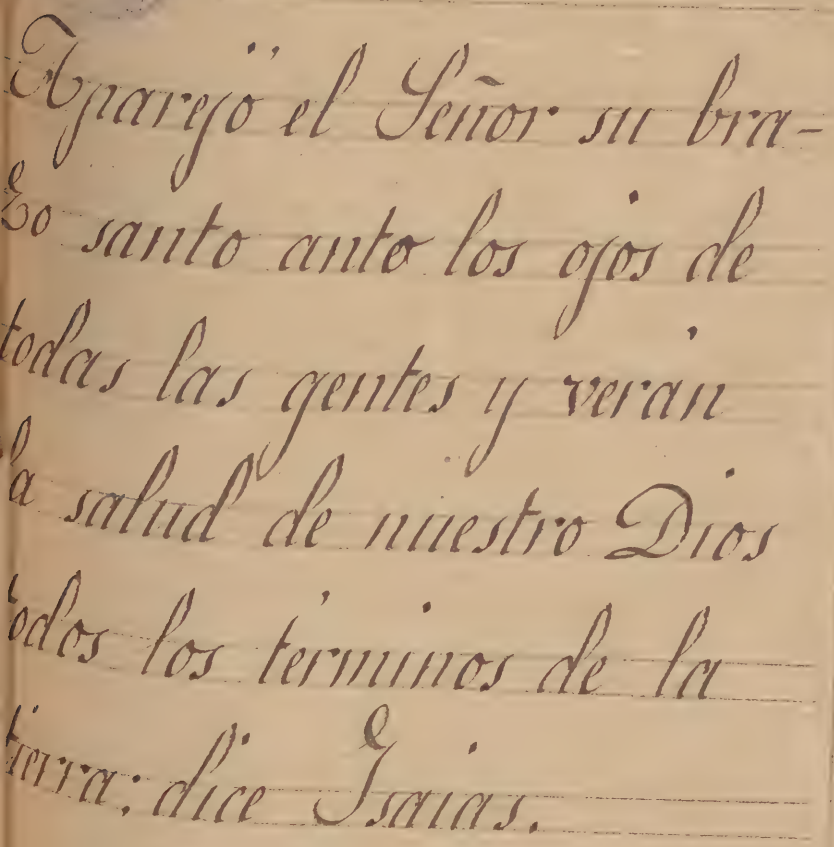 Aparejó el Señor su bra-
zo santo anto los ojos de
todas las gentes y verán
la salud de nuestro Dios
todos los términos de la
tierra: dice Isaias.